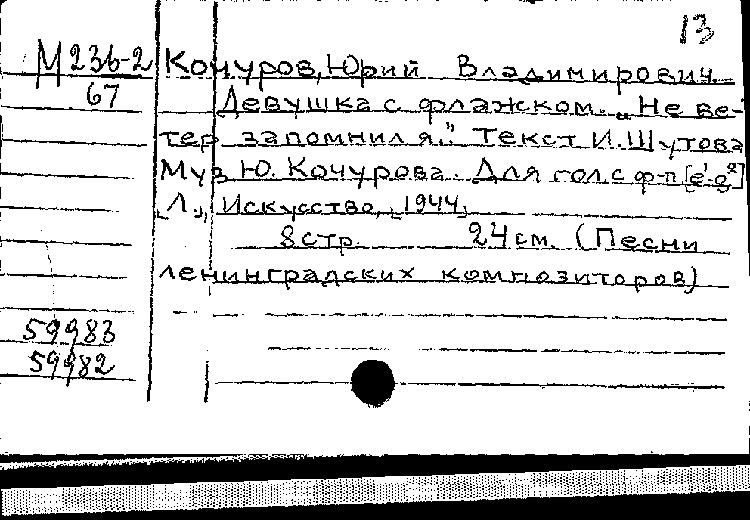 13
М 236-2 Кочуров, Юрий Владимирович
67 Девушка с флажком. „Не ве-
тер запомнил я." Текст И. Шутова
Муз Ю. Кочурова. Для гол. с ф-п [e¹-g²]
„Л.", Искусство, [1944]
8 стр. 24 см. (Песни
ленинградских композиторов)
59983
59982